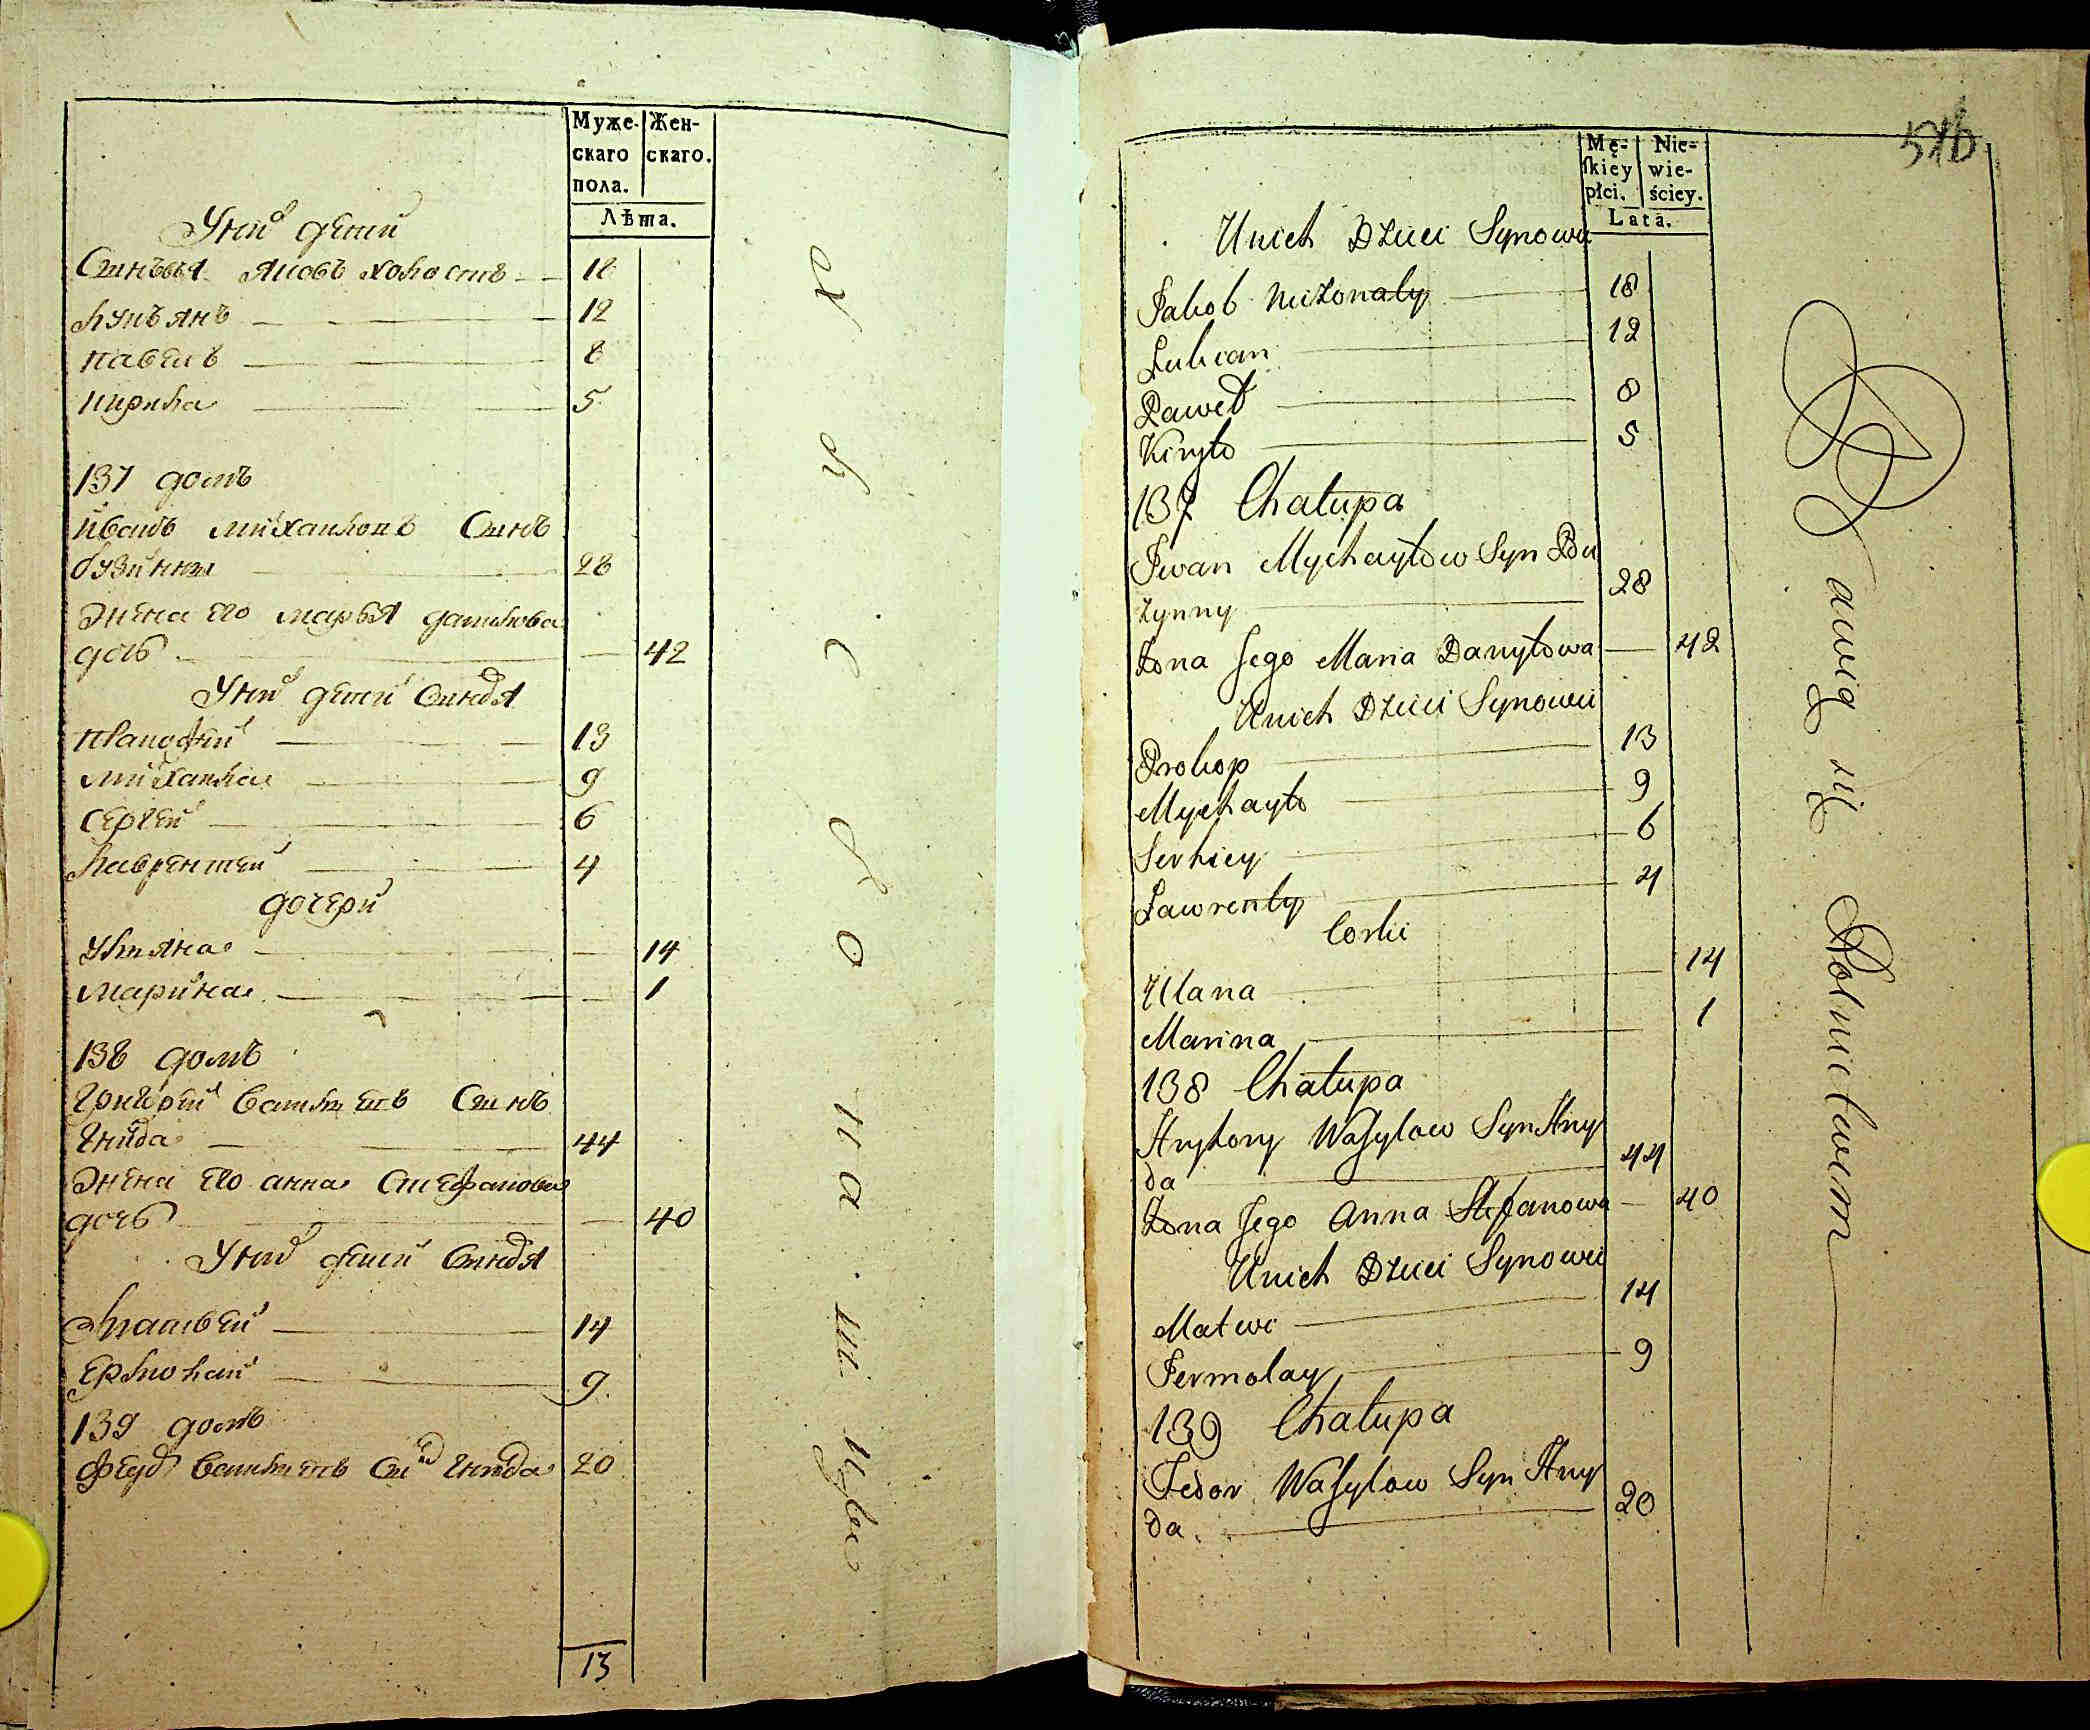 Муже- Жен-
скаго скаго.
пола.
Лѣта.
У них дети
Синовья Яковъ холостъ 18
Лукъянъ 12
павелъ 8
кирила 5
137 домъ
иванъ михайловъ Синъ
бузинны 28
жена его марья данилова
дочь 42
У них дети Синовья
михаила 9
Сергей 6
Лаврентей 4
дочери
ульяна 14
марина 1
138 домъ
григорей василевъ Синъ
гнида 44
жена его анна Стефанова
дочь 40
У них дети Синовья
Матвей 14
Ермолай 9
139 домъ
василевъ Синъ гнида 20
13
Mę- Nie-
skiey wie-
płci. ściey.
Lata.
Unich Dzieci Synowie
Jakob nieżonaty 18
Lukian 12
Paweł 8
Kiryło 5
137 Chałupa
Iwan Mychayłow Syn Bu
zynny 28
żona Jego Maria Danyłowa 42
Unich Dzieci Synowie
Prokop 13
Mychayło 9
Serhiey 6
Ławrenty 4
Corki
Ulana 14
Marina 1
138 Chałupa
Hryhory Wasylow Syn Hny
da 44
żona Jego Anna Stefanowa 40
Unich Dzieci Synowie
Matwi 14
Jermolay 9
139 Chałupa
Fedor Wasylow Syn Hny
da 20
Bawią się Rolnictwem